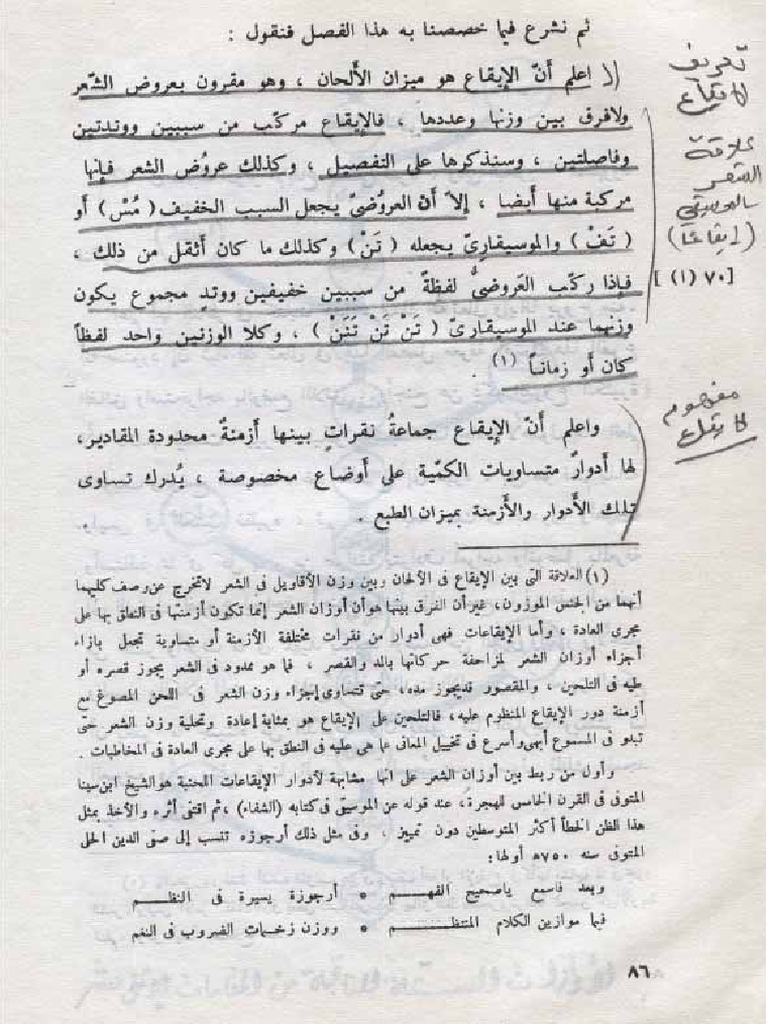 ثم نشرع فيما خصصنا به هذا الفصل فنقول :
اعلم أنّ الإيقاع هو ميزان الألحان ، وهو مقرون بعروض الشّعر
ولافرق بين وزنها وعددها ، فالإيقاع مركّب من سببين ووتدتين
وفاصلتين ، وسنذكرها على التفصيل ، وكذلك عروُض الشعر فإنها
مركبة منها أيضا ، إلاّ أن العروضىّ يجعل السبب الخفيف ( مُسْ ) أو
( تَفْ ) والموسيقارىّ يجعله ( تَنْ ) وكذلك ما كان أثقل من ذلك ،
فإذا ركّب العَروضىُّ لفظةً من سببين خفيفين ووتدٍ مجموع يكون
وزنهما عند الموسيقارىّ ( تَنْ تَنْ تَنَنْ ) ، وكلا الوزنين واحد لفظاً
كان أو زماناً (١) .
واعلم أنّ الإيقاع جماعةُ نقراتٍ بينها أزمنةٌ محدودة المقادير،
لها أدوارٌ متساويات الكمّية على أوضاع مخصوصة ، يُدرك تساوى
تلك الأدوار والأزمنة بميزان الطبع .
تعريف
الايقاع
علاقة
الشعر
بالموسيقى
(إيقاعًا)
[٧٠ (١)]
مفهوم
الايقاع
(١) العلاقة التى بين الإيقاع فى الألحان وبين وزن الأقاويل فى الشعر لاتخرج عن وصف كليهما
أنهما من الجنس الموزون، غير أن الفرق بينها هو أن أوزان الشعر إنما تكون أزمنتها فى النطق بها على
مجرى العادة ، وأما الإيقاعات فهى أدوار من نقرات مختلفة الأزمنة أو متساوية تجعل بإزاء
أجزاء أوزان الشعر لمزاحفة حركاتها بالمد والقصر ، فما هو ممدود فى الشعر يجوز قصره أو
طيه فى التلحين ، والمقصور قد يجوز مده، حتى تتساوى إجزاء وزن الشعر فى اللحن المصوغ مع
أزمنة دور الإيقاع المنظوم عليه، فالتلحين على الإيقاع هو بمثابة إعادة وتحلية وزن الشعر حتى
تبدو فى المسموع أبهى وأسرع فى تخييل المعانى مما هى عليه فى النطق بها على مجرى العادة فى المخاطبات .
وأول من ربط بين أوزان الشعر على أنها مشابهة لأدوار الإيقاعات اللحنية هو الشيخ ابن سينا
المتوفى فى القرن الخامس للهجرة، عند قوله عن الموسيقى فى كتابه (الشفاء) ، ثم اقتفى أثره والأخذ بمثل
هذا الظن الخطأ أكثر المتوسطين دون تمييز ، وفى مثل ذلك أرجوزه تنسب إلى صفى الدين الحلى
المتوفى سنه ٧٥٠ه أولها:
وبعد فاسمع ياصحيح الفهـــم * أرجوزة يسيرة فى النظـــم
فيما موازين الكلام المنتظـــم * ووزن زخمات الضروب فى النغم
٨٦